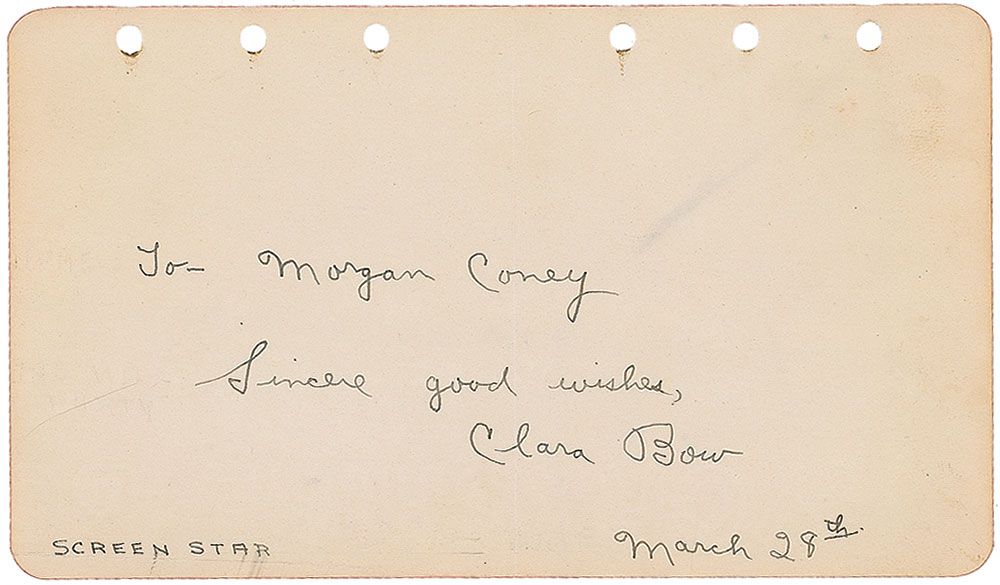 To- Morgan Coney
Sincere good wishes,
Clara Bow
SCREEN STAR
March 28th.